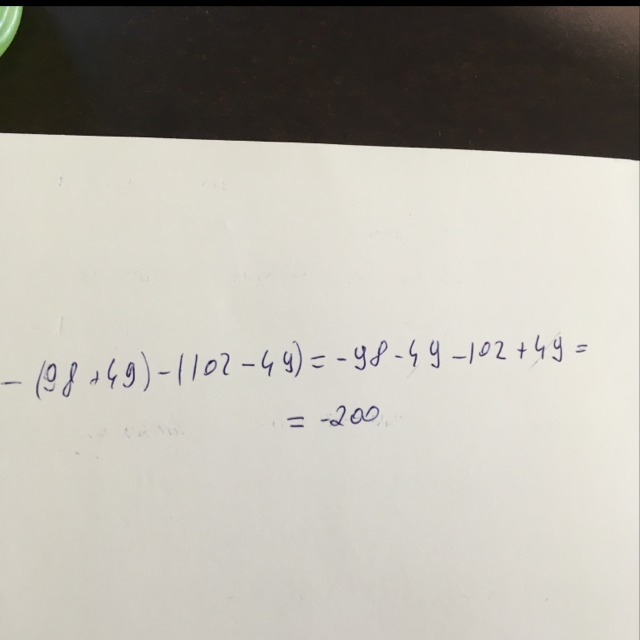 - (98 + 49) - (102 - 49) = - 98 - 49 - 102 + 49 =
= -200